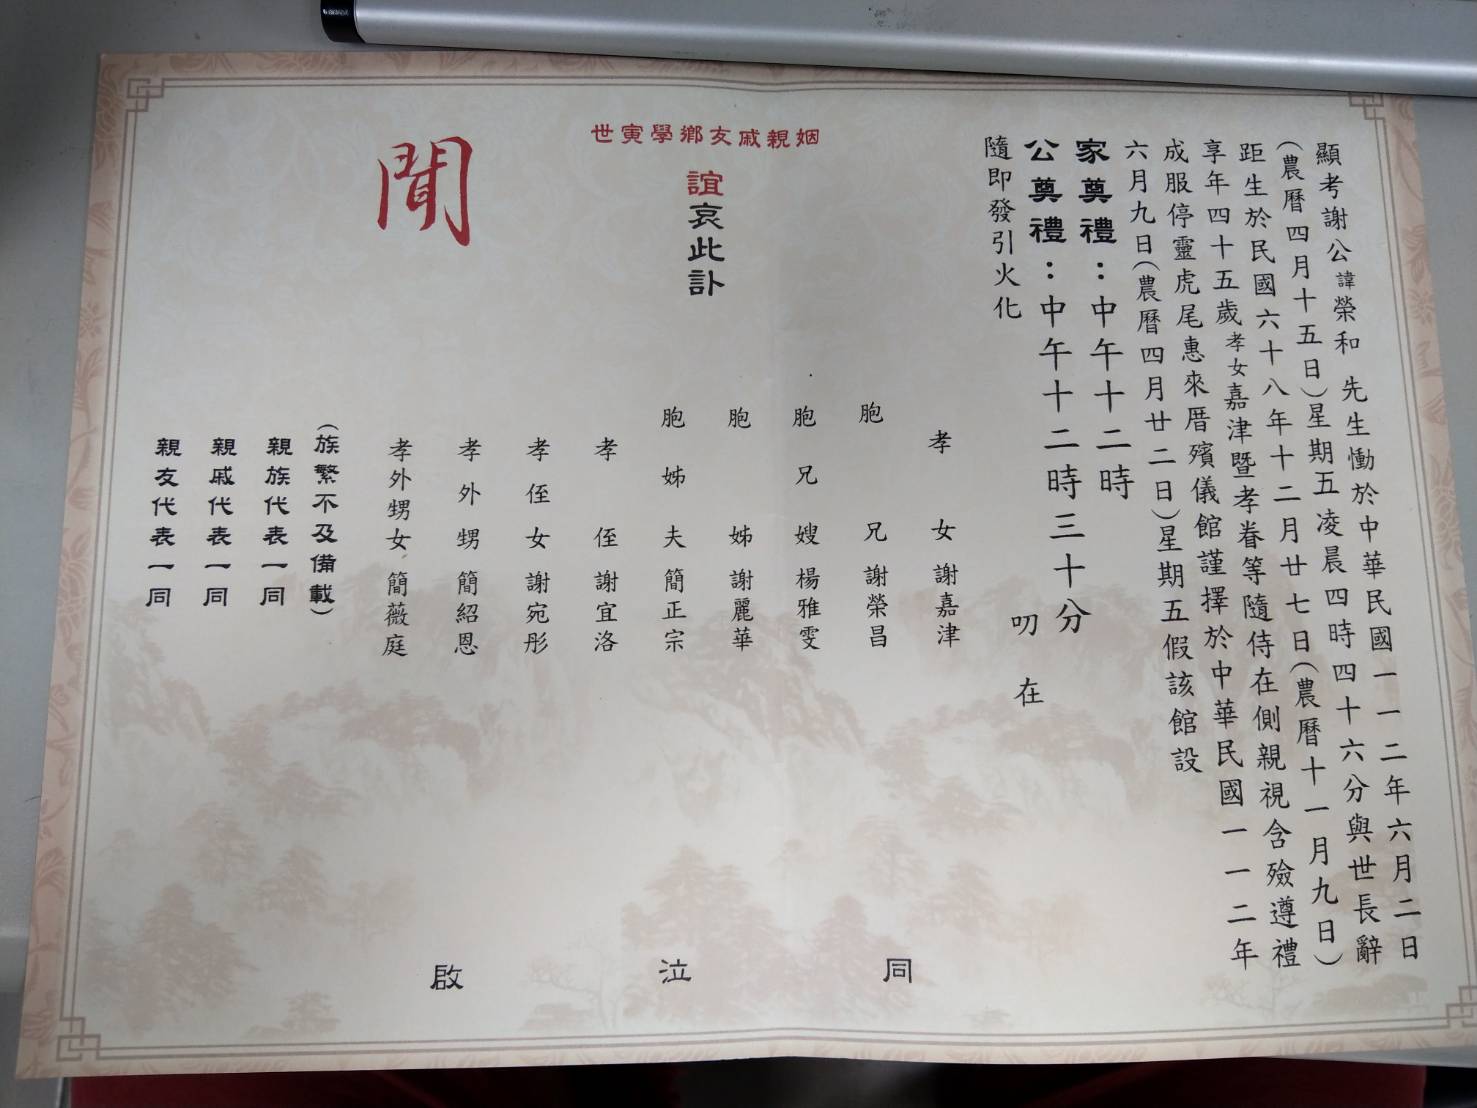 顯考謝公諱榮和 先生慟於中華民國一一二年六月二日
(農曆四月十五日)星期五凌晨四時四十六分與世長辭
距生於民國六十八年十二月廿七日(農曆十一月九日)
享年四十五歲孝女嘉津暨孝眷等隨侍在側親視含殮遵禮
成服停靈虎尾惠來厝殯儀館謹擇於中華民國一一二年
六月九日(農曆四月廿二日)星期五假該館設
家奠禮：中午十二時
公奠禮：中午十二時三十分
隨即發引火化
叨在
姻親戚友鄉學寅世
誼哀此訃
聞
孝女 謝嘉津
胞兄 謝榮昌
胞兄嫂 楊雅雯
胞姊 謝麗華
胞姊夫 簡正宗
孝侄 謝宜洛
孝侄女 謝宛彤
孝外甥 簡紹恩
孝外甥女 簡薇庭
(族繁不及備載)
親族代表一同
親戚代表一同
親友代表一同
同泣啟